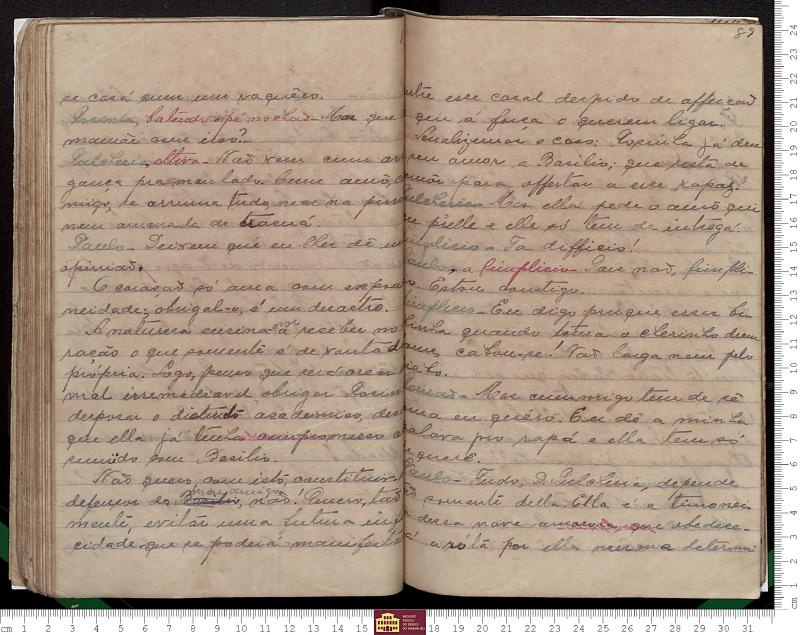 se casá cum um vaquêro.
Rosinha, batendo o pé no chão - Mas que
mamãe com isso?..
Pulcheria, altiva - Não vem cum ar
gança pra meu lado. Cume amô, co
migo, se arruma tudo, mas na pin
nem amarrada de tracuá.
Paulo - Deixem que eu lhes dê m
opinião.
O coração só ama com expon
neidade; obrigal-o, é um desastre.
A natureza ensina-nos a receber no
ração o que somente é de vontad
própria. Logo, penso que será um
mal irremediavel obrigar Rosin
desposar o distinto academico, des
que ella já tenha compromisso a
sumido com Basilio.
Não quero, com isto, constituir-
defensor do meu amigo, não! Quero, tão
mente, evitar uma futura infe
cidade que se poderá manifestá
89
ntre esse casal despido de affeição
que á força o querem ligar.
Finalizemos o caso: Rosinha já deu
seu amôr a Basilio; que resta de
amôr para offertar a esse rapaz?
Pulcheria - Mas ella pede o amô qui
u pielle e elle só tem de intregá.
Simplicio - Ta difficio!
Paulo, a Simplicio - Pois não, Simpli-
o. Estou comtigo.
Simplicio - Eu digo pruque essas bu
linha quando toma o cherinho dum
ome, cabou-se! Não larga nem pelo
iabo.
- Mas cummigo tem de sê
uma eu quéro. Eu dê a minha
alavra pro rapá e ella tem só
u queró.
Paulo - Tudo, D. Pulcheria, depende
ão somente della. Ella é a timonei-
a dessa nave amorosa, que obedece-
á a róta por ella mesma determi